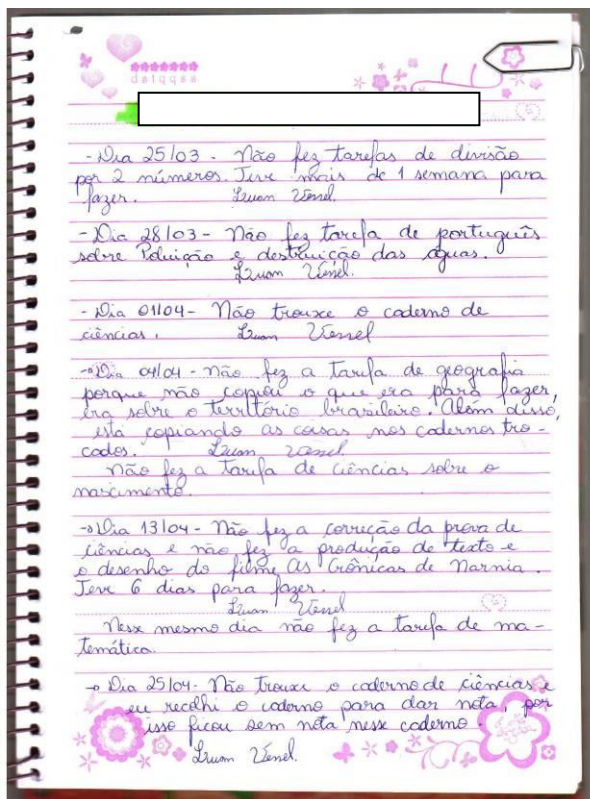 datqqsa
- Dia 25/03 - Não fez tarefas de divisão
por 2 números. Teve mais de 1 semana para
fazer. Luan
- Dia 28/03 - Não fez tarefa de português
sobre Poluição e destruição das águas.
Luan
- Dia 01/04 - Não trouxe o caderno de
ciências. Luan
- Dia 04/04 - não fez a tarefa de geografia
porque não copiou o que era para fazer,
era sobre o território brasileiro. Além disso,
está copiando as coisas nos cadernos tro-
cados. Luan
Não fez a tarefa de ciências sobre o
nascimento.
→ Dia 13/04 - Não fez a correção da prova de
ciências e não fez a produção de texto e
o desenho do filme As Crônicas de Narnia.
Teve 6 dias para fazer.
Luan
Nesse mesmo dia não fez a tarefa de ma-
temática.
→ Dia 25/04 - Não trouxe o caderno de ciências e
eu recolhi o caderno para dar nota, por
isso ficou sem nota nesse caderno.
Luan